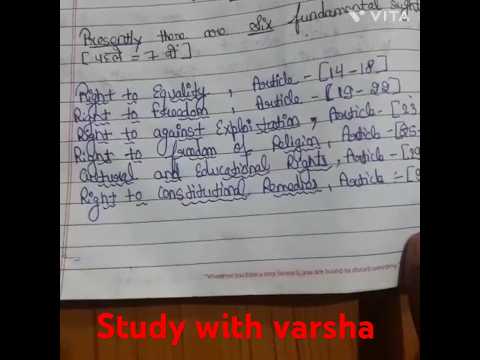 VITA
Presently there are six fundamental right
[पहले = 7 थे]
Right to Equality, Article - [14-18]
Right to Freedom, Article - [19-22]
Right to against Exploitation, Article - [23
Right to freedom of Religion, Article - [25-
Cultural and Educational Rights, Article - [29
Right to Constitutional Remedies, Article - [
Study with varsha